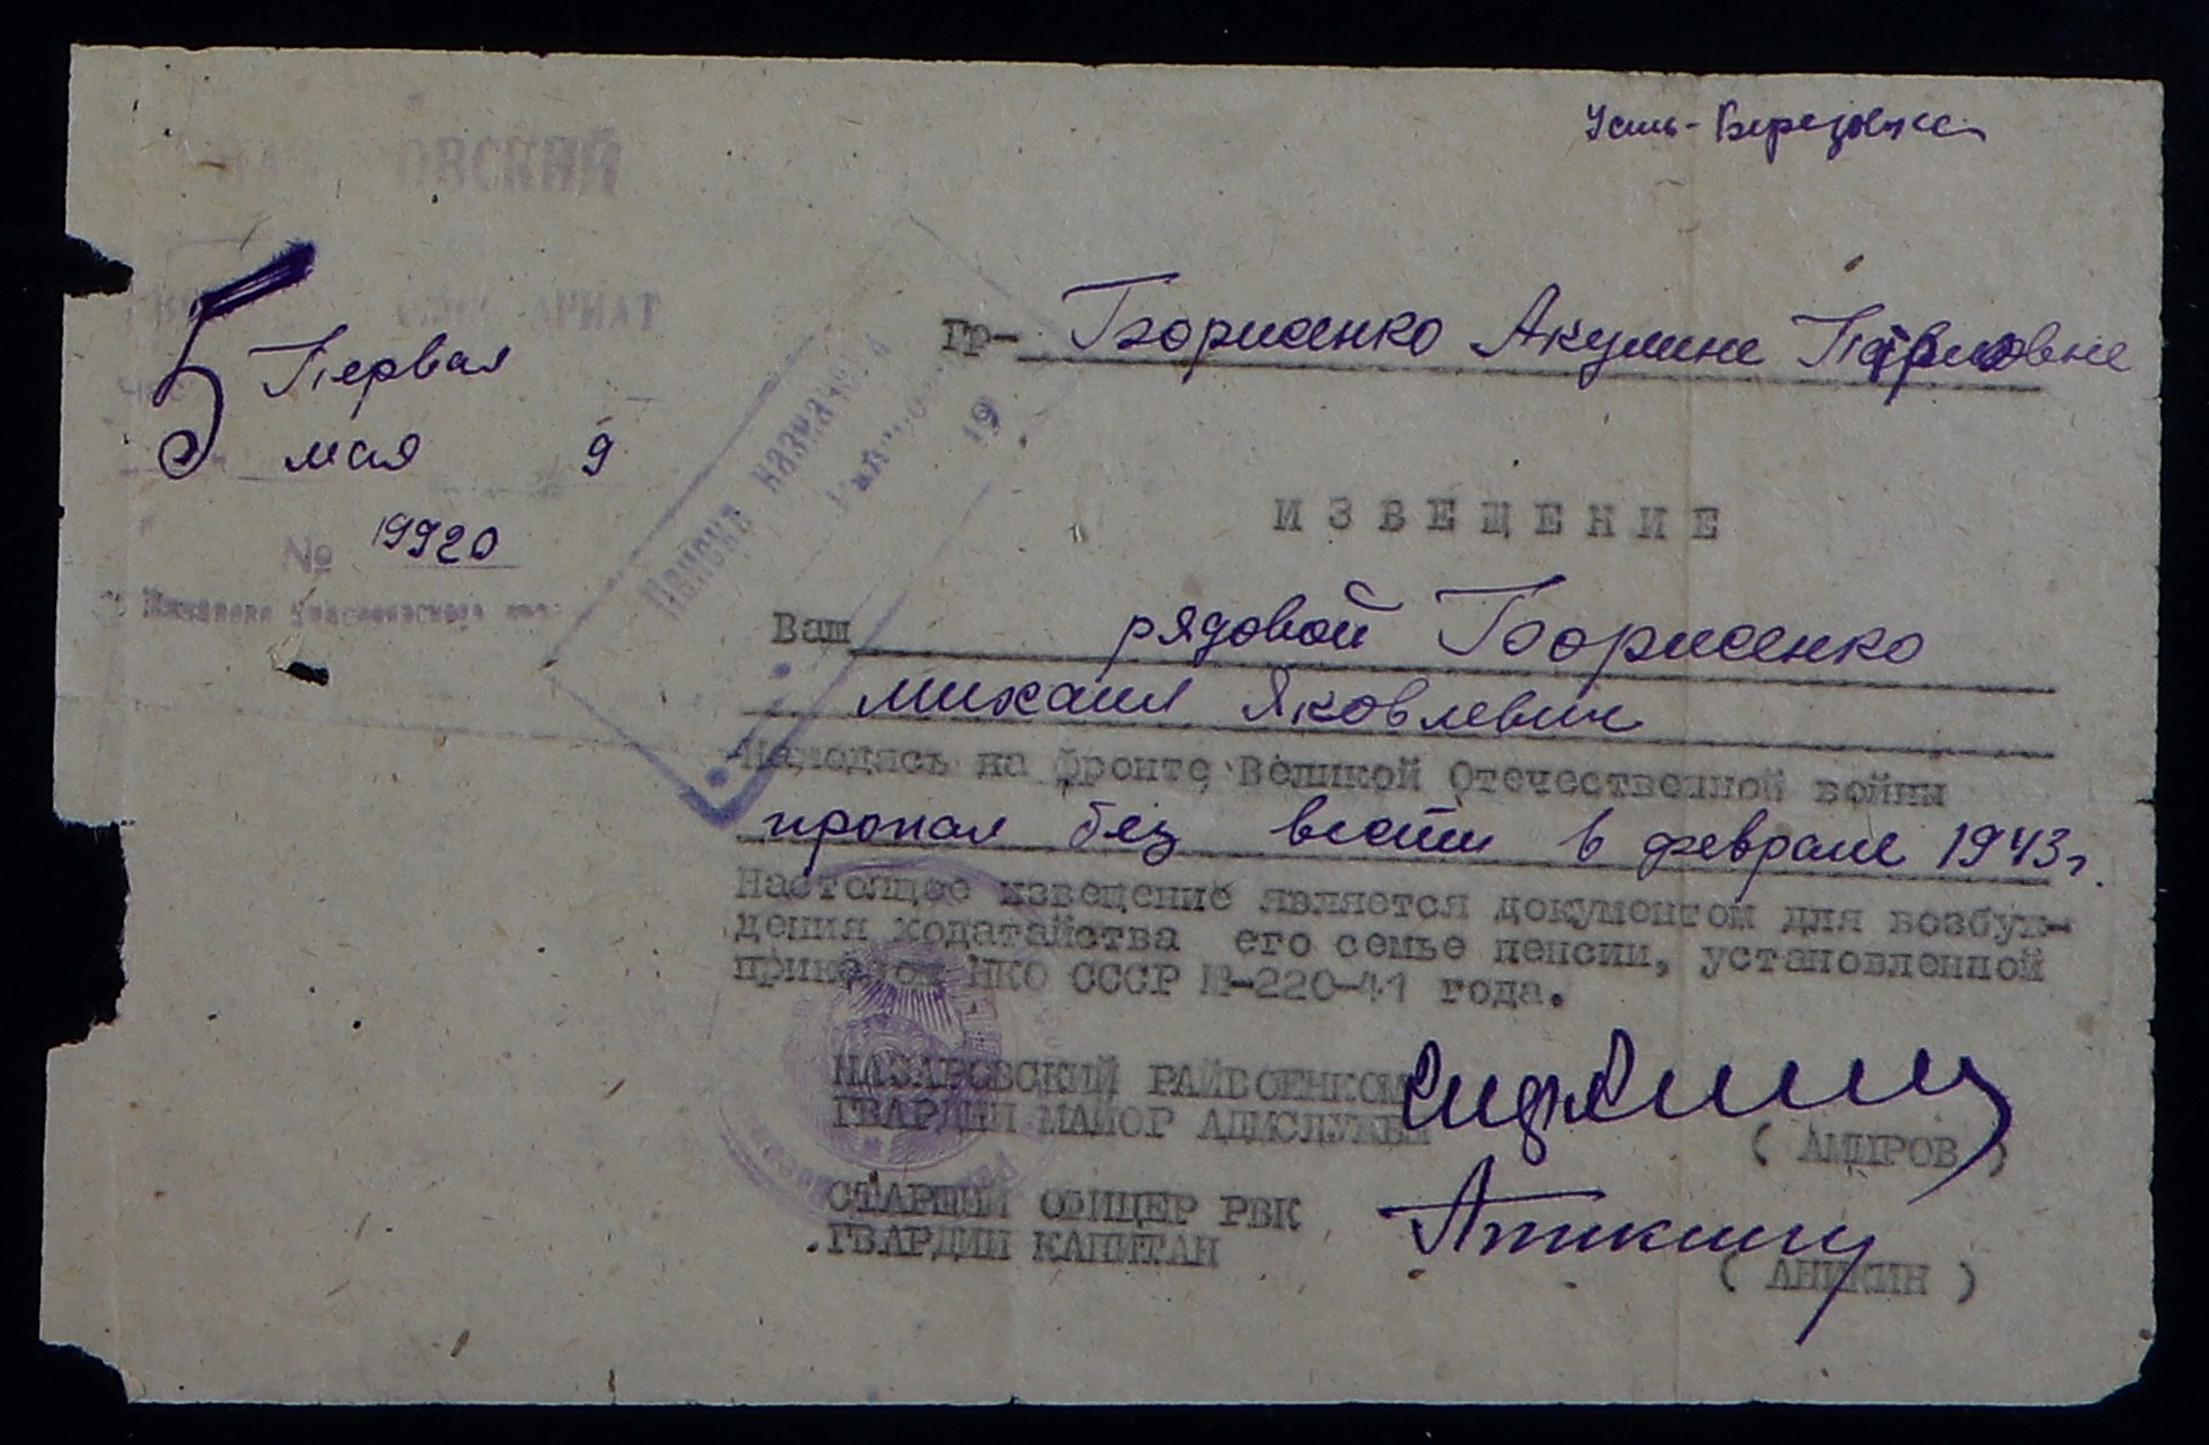 Усть-Березовка
ОВСКИЙ
АРИАТ
Первая
5 мая 9
№ 19920
Пенсия назначена
19
Гр- Борисенко Акулине
ИЗВЕЩЕНИЕ
Ваш рядовой Борисенко
Михаил Яковлевич
Находясь на фронте Великой Отечественной войны
пропал без вести в феврале 1943 г.
Настоящее извещение является документом для возбуж-
дения ходатайства его семье пенсии, установленной
приказом НКО СССР №-220-41 года.
НАЗАРОВСКИЙ РАЙВОЕНКОМ
ГВАРДИИ МАЙОР АДМСЛУЖБЫ
( АМИРОВ )
СТАРШИЙ ОФИЦЕР РВК
ГВАРДИИ КАПИТАН
( АНИКИН )